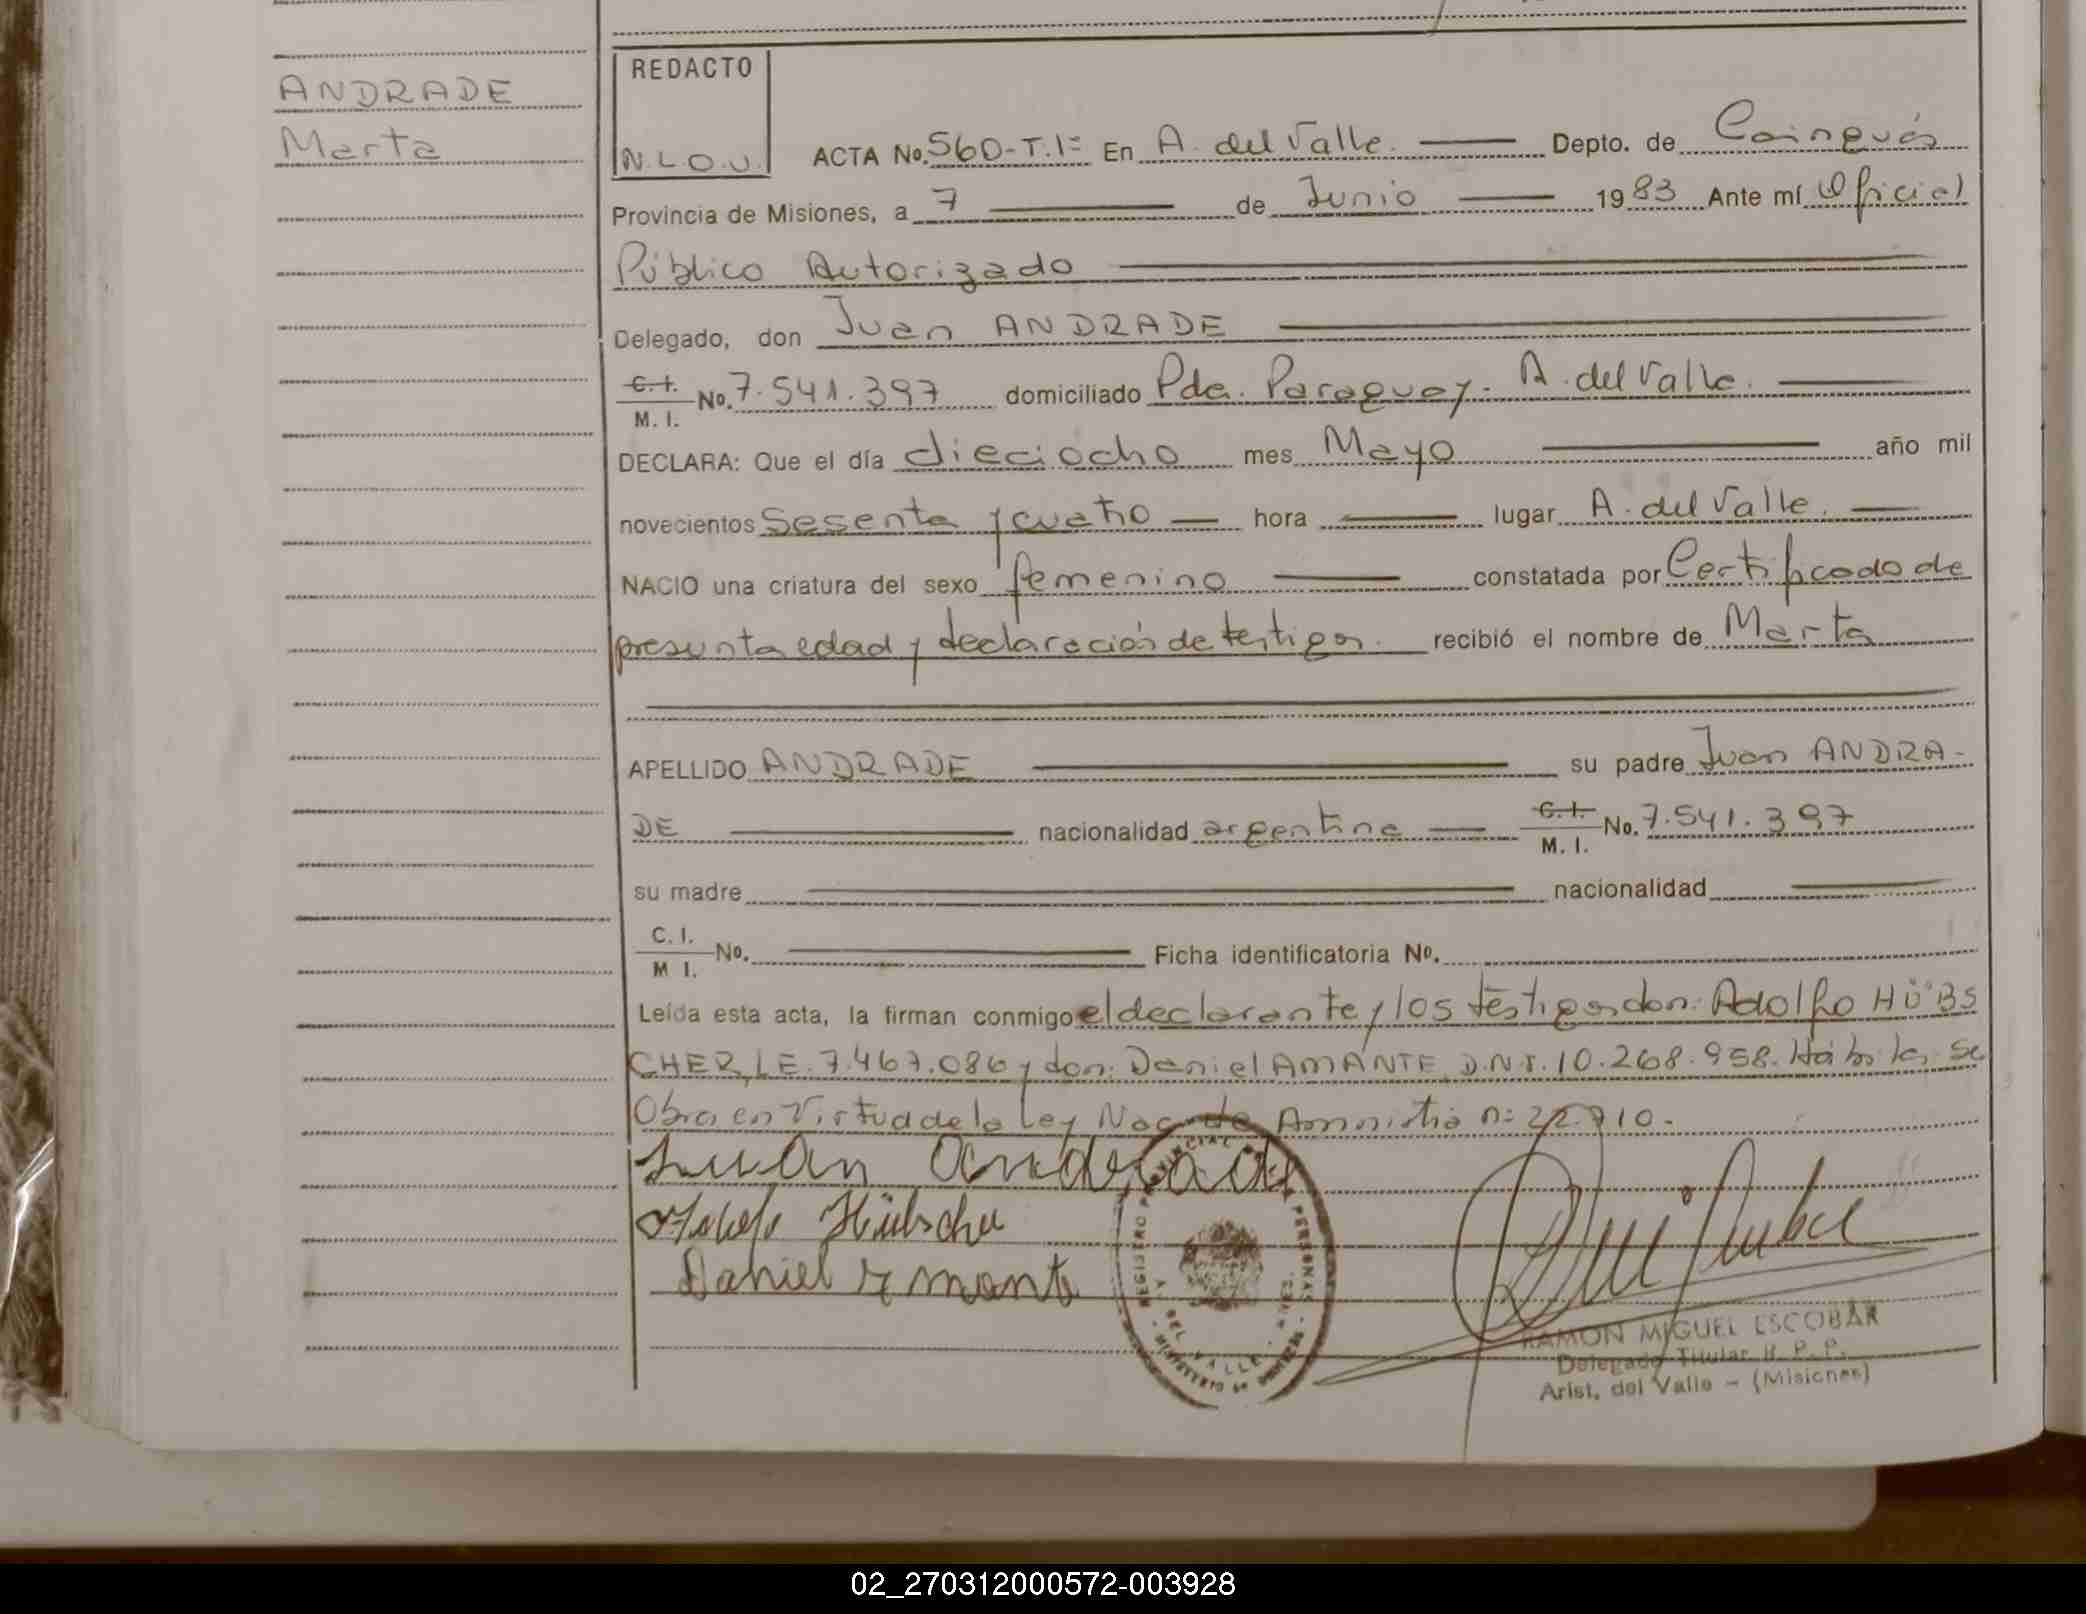 ANDRADE
Marta
REDACTO
N.L.O.U.
ACTA No. 560-T.1= En A. del Valle. Depto. de Cainguás
Provincia de Misiones, a 7 de Junio 1983 Ante mí Oficial
Público Autorizado
Delegado, don Juan ANDRADE
C. I. M. I. No. 7.541.397 domiciliado Pda. Paraguay. A. del Valle.
DECLARA: Que el día dieciocho mes Mayo año mil
novecientos sesenta y cuatro hora lugar A. del Valle.
NACIO una criatura del sexo femenino constatada por Certificado de
presunta edad y declaración de testigos. recibió el nombre de Marta
APELLIDO ANDRADE su padre Juan ANDRA-
DE nacionalidad argentina C. I. M. I. No. 7.541.397
su madre nacionalidad
C. I. M I. No. Ficha identificatoria No.
Leída esta acta, la firman conmigo el declarante y los testigos don: Adolfo HÜBS
CHER, L.E. 7.467.086 y don: Daniel AMANTE D.N.I. 10.268.958. Hábiles. Se
Obra en Virtud de la Ley Nac. de Amnistía n: 22.710.
Juan Andrade
Adolfo Hübscher
Daniel Amante
REGISTRO PROVINCIAL DE LAS PERSONAS
A. DEL VALLE
MINISTERIO DE GOBIERNO
RAMON MIGUEL ESCOBAR
Delegado Titular R. P. P.
Arist. del Valle - (Misiones)
02_270312000572-003928